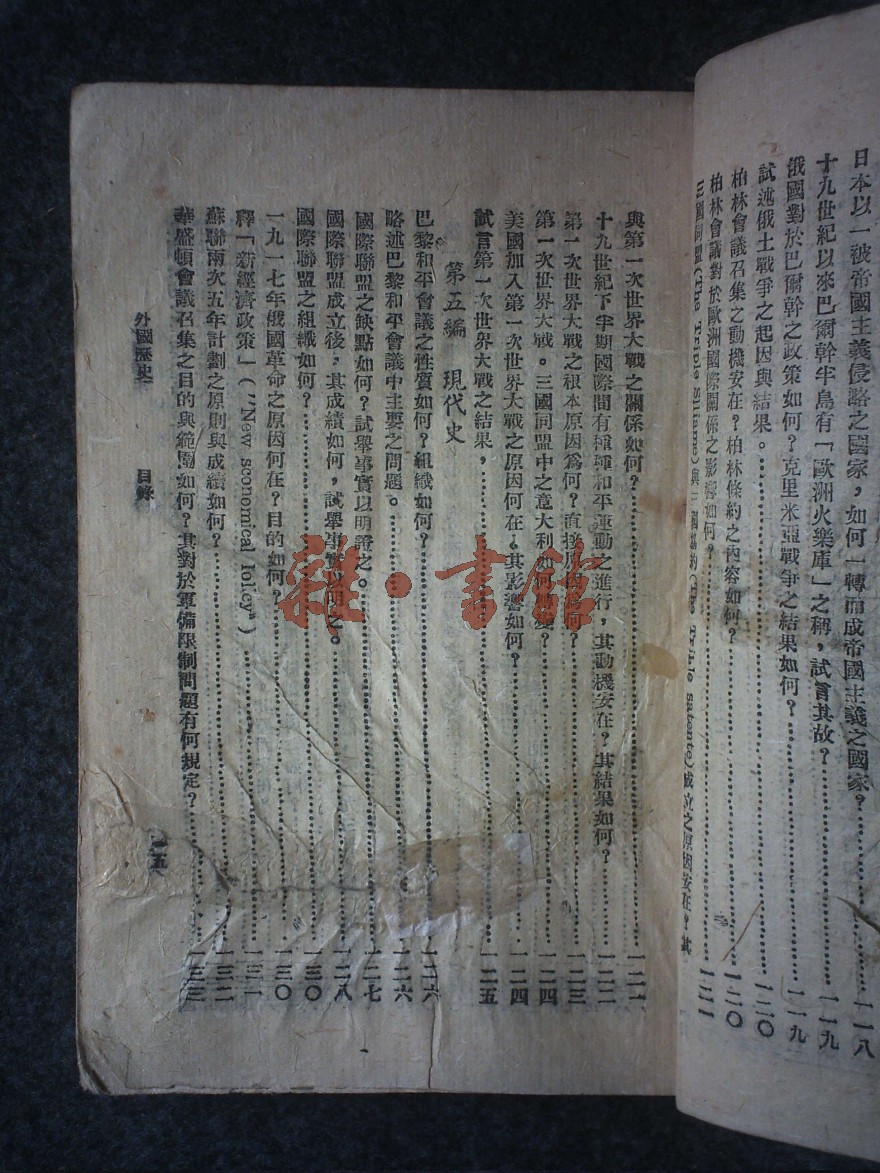 日本以一被帝國主義侵略之國家,如何一轉而成帝國主義之國家?一一八
十九世紀以來巴爾幹半島有「歐洲火藥庫」之稱,試言其故?一一九
俄國對於巴爾幹之政策如何?克里米亞戰爭之結果如何?一一九
試述俄土戰爭之起因與結果。一二〇
柏林會議召集之動機安在?柏林條約之內容如何?一二〇
柏林會議對於歐洲國際關係之影響如何?一二一
三國同盟(The Triple 與三國協約(The Triple satente)成立之原因安在?其
與第一次世界大戰之關係如何?一二一
十九世紀下半期國際間有種種和平運動之進行,其動機安在?其結果如何?一二二
第一次世界大戰之根本原因爲何?直接原因爲何?一二三
第一次世界大戰。三國同盟中之意大利如何 變?一二四
美國加入第一次世界大戰之原因何在。其影響如何?一二四
試言第一次世界大戰之結果,一二五
第五編 現代史
巴黎和平會議之性质如何?組織如何?一二六
略述巴黎和平會議中主要之問題。一二六
國際聯盟之缺點如何?試舉事實以明證之。一二七
國際聯盟成立後,其成績如何,試舉事實以明之。一二八
國際聯盟之組織如何?一三〇
一九一七年俄國革命之原因何在?目的如何?一三〇
釋「新經濟政策」("New sconomical Ioliey")一三一
蘇聯兩次五年計劃之原則與成績如何?一三二
華盛頓會議召集之目的與範圍如何?其對於軍備限制問題有何規定?一三三
外國歷史 目錄 一五
雜·書館